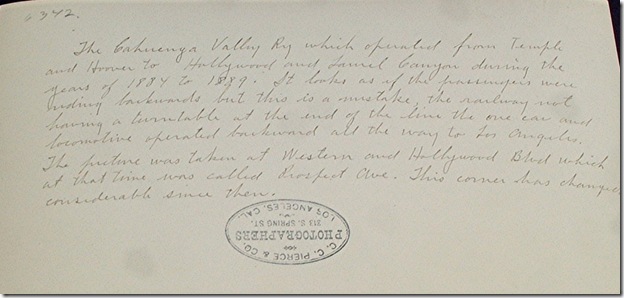 6342.
The Cahuenga Valley Ry which operated from Temple
and Hoover to Hollywood and Laurel Canyon during the
years of 1884 to 1889. It looks as if the passengers were
riding backwards but this is a mistake, the railway not
having a turntable at the end of the line the one car and
locomotive operated backward all the way to Los Angeles.
The picture was taken at Western and Hollywood Blvd which
at that time was called Prospect Ave. This corner has changed
considerable since then.
C. C. PIERCE & CO.
PHOTOGRAPHERS
313 S. SPRING ST.
LOS ANGELES, CAL.